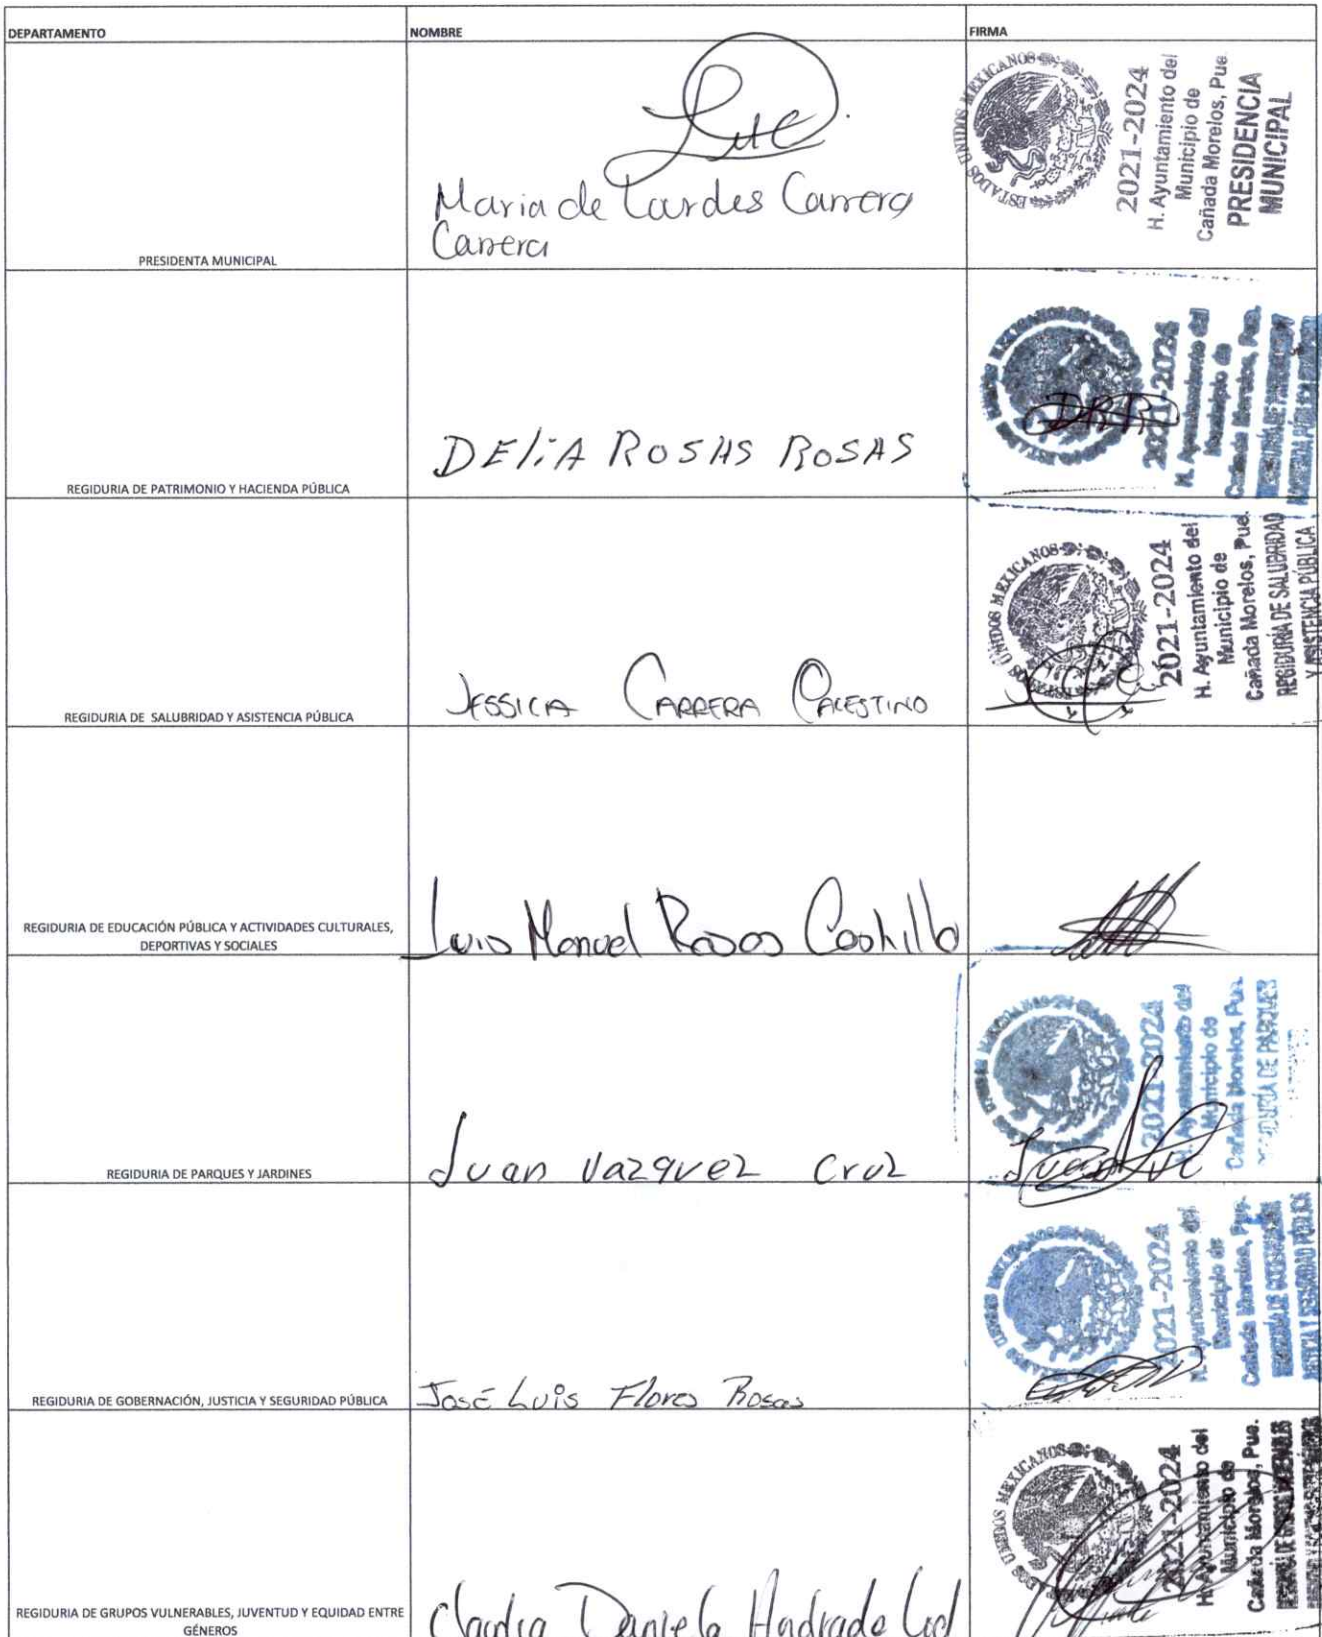 DEPARTAMENTO
NOMBRE
FIRMA
PRESIDENTA MUNICIPAL
Maria de Lourdes Carrera
Carrera
ESTADOS UNIDOS MEXICANOS
2021-2024
H. Ayuntamiento del
Municipio de
Cañada Morelos, Pue.
PRESIDENCIA
MUNICIPAL
REGIDURIA DE PATRIMONIO Y HACIENDA PÚBLICA
DELIA ROSAS ROSAS
DRR
2021-2024
H. Ayuntamiento del
Municipio de
Cañada Morelos, Pue.
REGIDURIA DE SALUBRIDAD Y ASISTENCIA PÚBLICA
JESSICA CARRERA
UNIDOS MEXICANOS
2021-2024
H. Ayuntamiento del
Municipio de
Cañada Morelos, Pue.
REGIDURÍA DE SALUBRIDAD
Y ASISTENCIA PÚBLICA
REGIDURIA DE EDUCACIÓN PÚBLICA Y ACTIVIDADES CULTURALES,
DEPORTIVAS Y SOCIALES
Luis Manuel Rosas Castillo
REGIDURIA DE PARQUES Y JARDINES
Juan Vazquez Cruz
2021-2024
H. Ayuntamiento del
Municipio de
Cañada Morelos, Pue.
REGIDURÍA DE PARQUES
REGIDURIA DE GOBERNACIÓN, JUSTICIA Y SEGURIDAD PÚBLICA
José Luis Flores Rosas
2021-2024
H. Ayuntamiento del
Municipio de
Cañada Morelos, Pue.
REGIDURÍA DE GOBERNACIÓN
JUSTICIA Y SEGURIDAD PÚBLICA
REGIDURIA DE GRUPOS VULNERABLES, JUVENTUD Y EQUIDAD ENTRE
GÉNEROS
Claudia Daniela Andrade
UNIDOS MEXICANOS
2021-2024
H. Ayuntamiento del
Municipio de
Cañada Morelos, Pue.